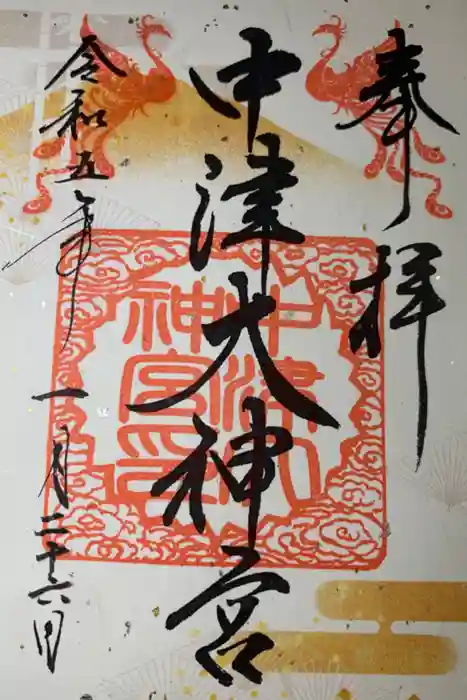 奉拝
中津大神宮
中津大
神宮印
令和五年
一月二十六日